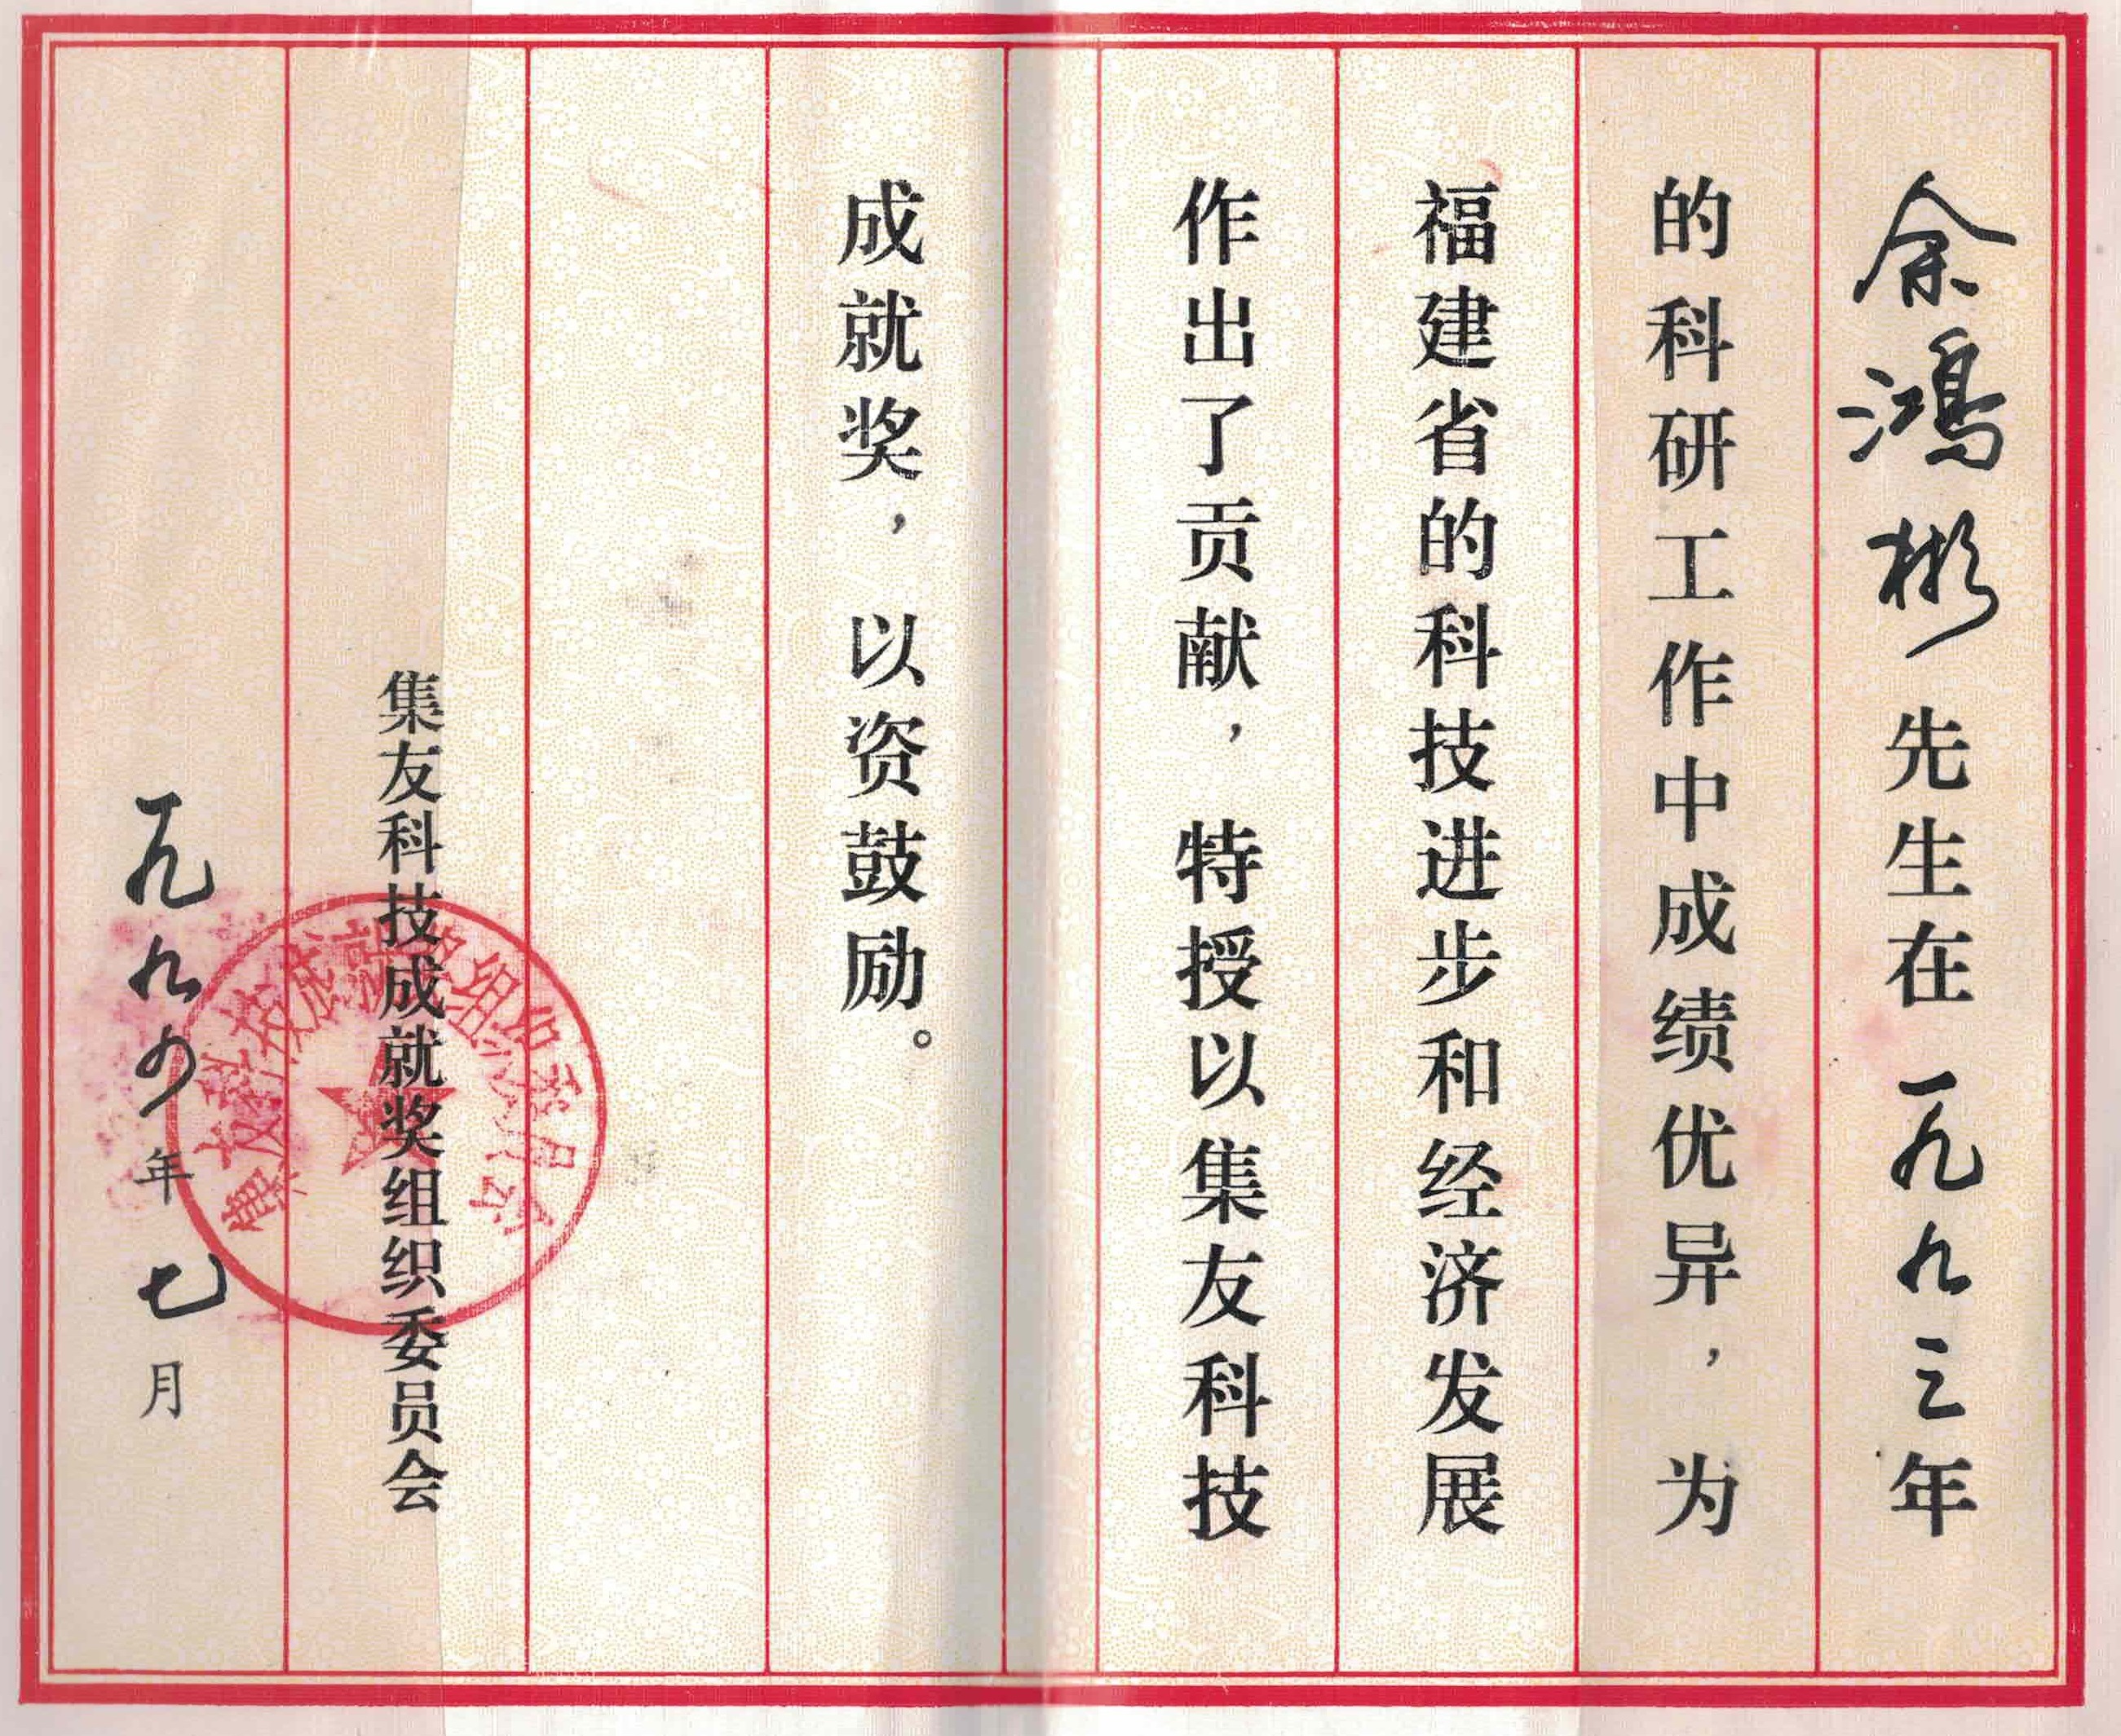 余鸿彬先生在一九九三年
的科研工作中成绩优异，为
福建省的科技进步和经济发展
作出了贡献，特授以集友科技
成就奖，以资鼓励。
集友科技成就奖组织委员会
一九九四年七月
集友科技成就奖组织委员会